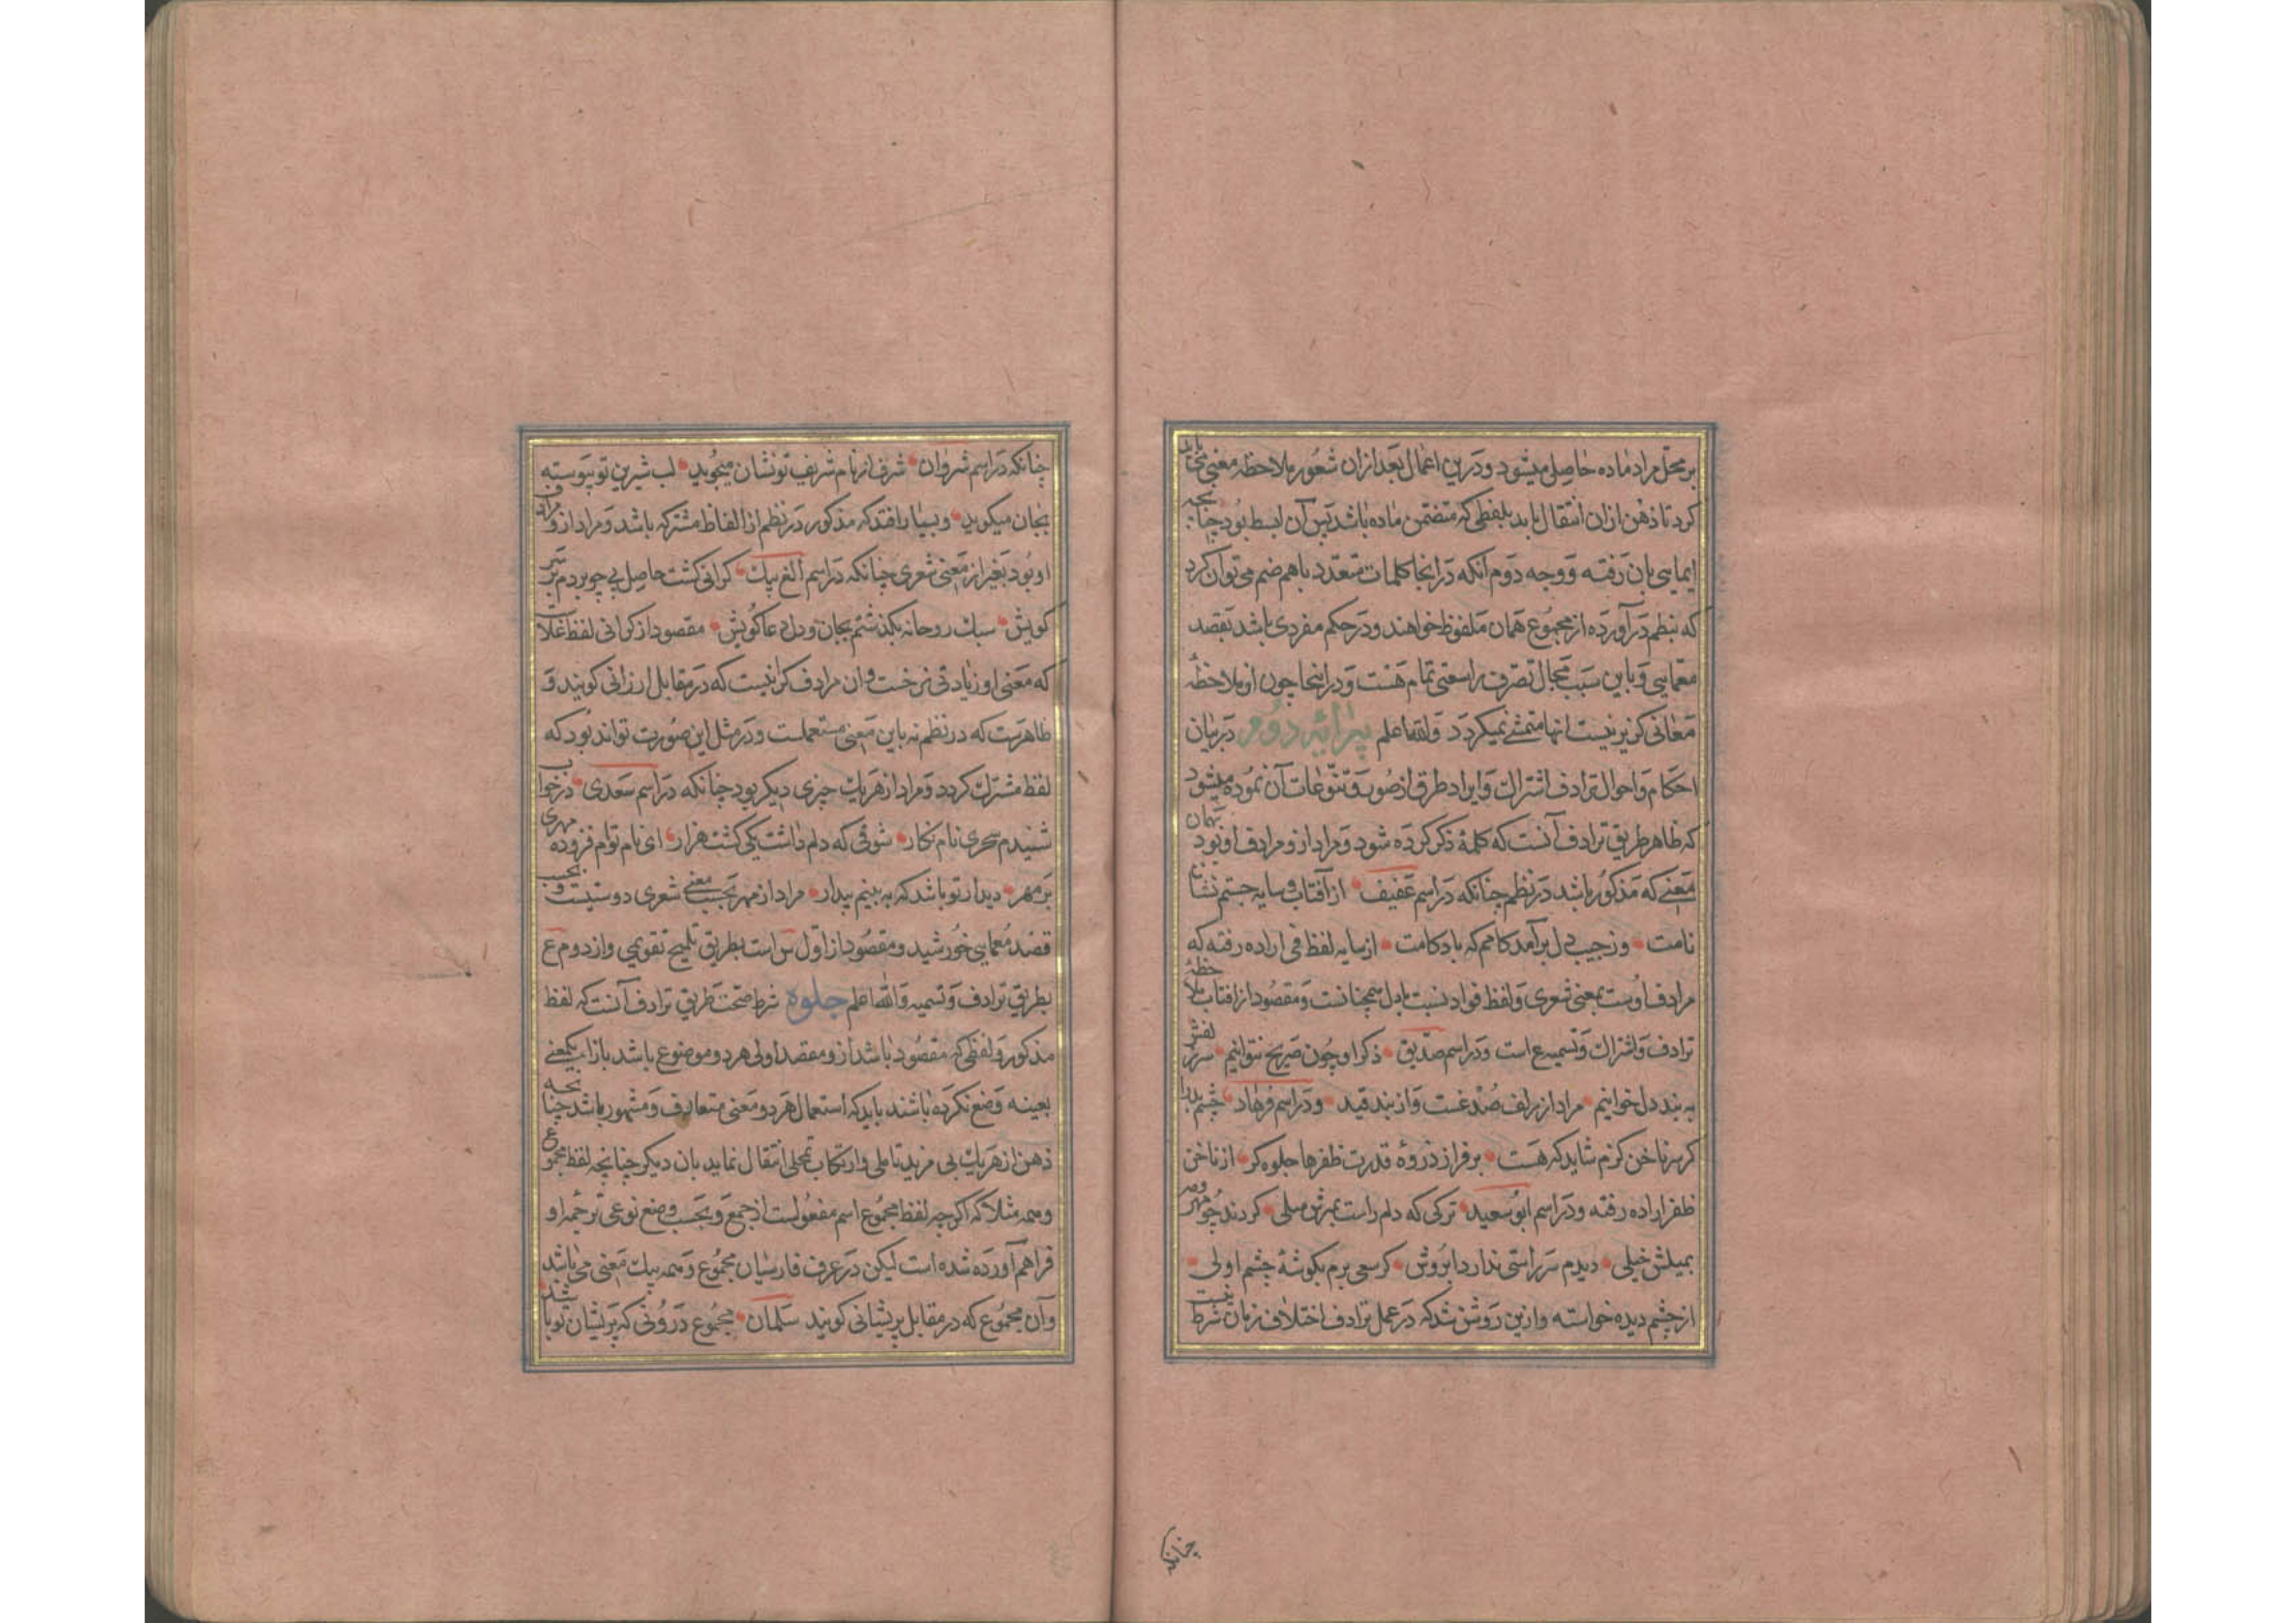 بر محل مراد ماده حاصل میشود و درین اعمال بعد ازان شعور بملاحظه معنی محتاج باید
کرد تا ذهن ازان انتقال یابد بلفظی که متضمن ماده باشد پس آن ابسط بود چنانچه
ایمایی بان رفته و وجه دوم انکه درانجا کلمات متعدد باهم ضم می توان کرد
که بنظم درآورده از مجموع همان ملفوظ خواهند و در حکم مفردی باشد بقصد
معمایی و باین سبب مجال تصرف راسعتی تمام هست و در اینجا چون از ملاحظه
معانی گزیر نیست انها متمشی نمیکردد والله اعلم پیرایه دوم در بیان
احکام و احوال ترادف اشتراک و ایراد طرق از صور و تنوعات آن نموده میشود
که ظاهر طریق ترادف آنست که کلمه ذکر کرده شود و مراد ازو مرادف او بود بهمان
معنی که مذکور باشد در نظم چنانکه در اسم عفیف از آفتاب و سایه جستم نشان
نامت وز جیب دل برآمد کامم که باد کامت از سایه لفظ فی اراده رفته که
مرادف اوست بمعنی شعری و لفظ فواد نسبت بادل همچنانست و مقصود از افتاب بملاحظه
ترادف و اشتراک و تسمیه ع است و در اسم صدیق ذکر او چون صریح نتوانیم سر زلفش
به بند دل خوانیم مراد از زلف صدغست و از بند قید و در اسم فرهاد چشم بدرا
کر سر ناخن کزم شاید که هست بر فراز ذروه قدرت ظفرها جلوه کر از ناخن
ظفر اراده رفته و در اسم ابو سعید ترکی که دلم راست بمهرش میلی کردند چو مهر و مه
بمیلش خیلی دیدم سر راستی ندارد ابروش کر سعی برم بکوشه چشم اولی
از چشم دیده خواسته وازین روشن شد که در عمل ترادف اختلاف زمان شرط نیست
چنانکه
چنانکه در اسم شروان شرف از نام شریف تو نشان میجوید لب شیرین تو پیوسته
بجان میکوید و بسیار افتد که مذکور در نظم از الفاظ مشترکه باشد و مراد ازو مرادف
او بود بغیر از معنی شعری چنانکه در اسم الغ بیک کرانی کشت حاصل بی چو بردم بر سر
کویش سبک روحانه بکذشتم بجان و دل دعا کویش مقصود از کرانی لفظ غلاست
که معنی او زیادتی نرخست وان مرادف کرانیست که در مقابل ارزانی کویند و
ظاهرست که در نظم نه باین معنی مستعملست و در مثل این صورت تواند بود که
لفظ مشترک کردد و مراد از هر یک چیزی دیگر بود چنانکه در اسم سعدی در خواب
شنیدم سحری نام نکار شوقی که دلم داشت یکی کشت هزار ای نام توام فزوده مهری
بر مهر دیدار تو باشد که به بینم بیدار مراد از مهر بحسب معنی شعری دوستیست و بحسب
قصد معمایی خورشید و مقصود از اول س است بطریق تلمیح تقویمی و از دوم ع
بطریق ترادف و تسمیه والله اعلم جلوه شرط صحت طریق ترادف آنست که لفظ
مذکور و لفظی که مقصود باشد ازو مقصد اولی هر دو موضوع باشد بازاء یکمعنی
بعینه وضع نکرده باشند باید که استعمال هر دو معنی متعارف و مشهور باشد چنانچه
ذهن از هر یک بی مزید تاملی و ارتکاب تمحلی انتقال نماید بان دیکر چنانچه لفظ مجموع
و همه مثلا که اکرچه لفظ مجموع اسم مفعولست از جمع و بحسب وضع نوعی ترجمه او
فراهم آورده شده است لیکن در عرف فارسیان مجموع و همه بیک معنی می باشد
وآن مجموع که در مقابل پریشانی کویند سلمان مجموع درونی که پریشان تو باشد